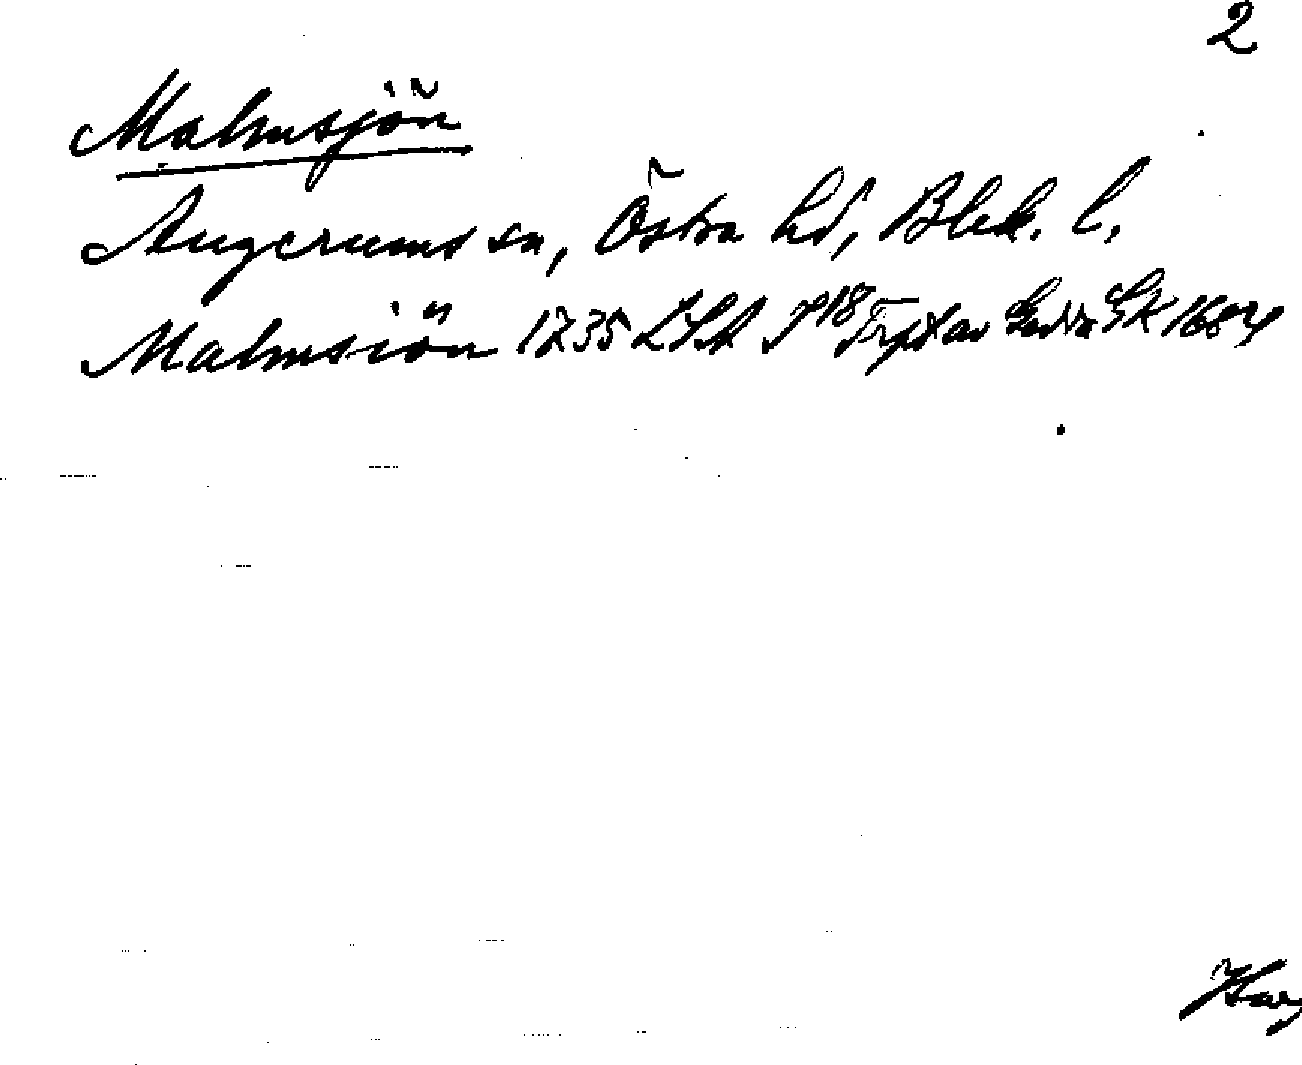 2
Malmsjön
Augerums sn, Östra hd, Blek. l.
Malmsiön 1735 LSA J18 av GK 1684